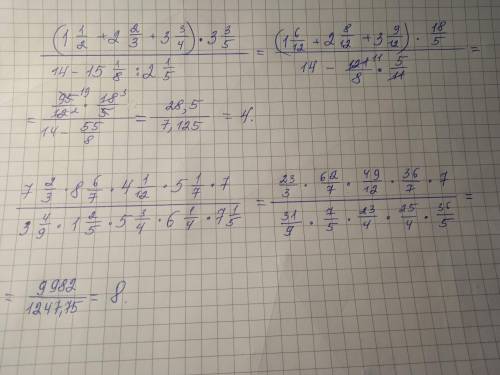 (1 1/2 + 2 2/3 + 3 3/4) · 3 3/5 / 14 - 15 1/8 : 2 1/5 = (1 6/12 + 2 8/12 + 3 9/12) · 18/5 / 14 - 121 11/8 · 5/11 =
= 95 19/12 2 · 18 3/5 / 14 - 55/8 = 28,5/7,125 = 4.
7 2/3 · 8 6/7 · 4 1/12 · 5 1/7 · 7 / 3 4/9 · 1 2/5 · 5 3/4 · 6 1/4 · 7 1/5 = 23/3 · 62/7 · 49/12 · 36/7 · 7 / 31/9 · 7/5 · 23/4 · 25/4 · 36/5 =
= 9982/1247,75 = 8.